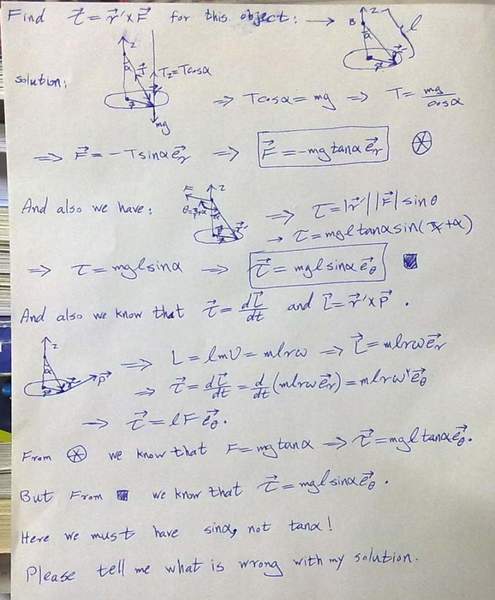 Find τ⃗ = r⃗' × F⃗ for this object: →
B α z l
solution:
z α T⃗ T_z = Tcosα mg
⇒ Tcosα = mg ⇒ T = mg/cosα
⇒ F⃗ = -Tsinα e⃗_r ⇒ F⃗ = -mg tanα e⃗_r ⊛
And also we have:
⇒ τ = |r⃗'||F⃗| sinθ
→ τ = mgl tanα sin(π/2 + α)
⇒ τ = mgl sinα ⇒ τ⃗ = mgl sinα e⃗_θ ■
And also we know that τ⃗ = dL⃗/dt and L⃗ = r⃗' × p⃗ .
z α p⃗
⇒ L = lmv = mlrω ⇒ L⃗ = mlrω e⃗_r
⇒ τ⃗ = dL⃗/dt = d/dt (mlrω e⃗_r) = mlrω² e⃗_θ
→ τ⃗ = lF e⃗_θ.
From ⊛ we know that F = mg tanα ⇒ τ⃗ = mgl tanα e⃗_θ.
But From ■ we know that τ⃗ = mgl sinα e⃗_θ.
Here we must have sinα, not tanα!
Please tell me what is wrong with my solution.